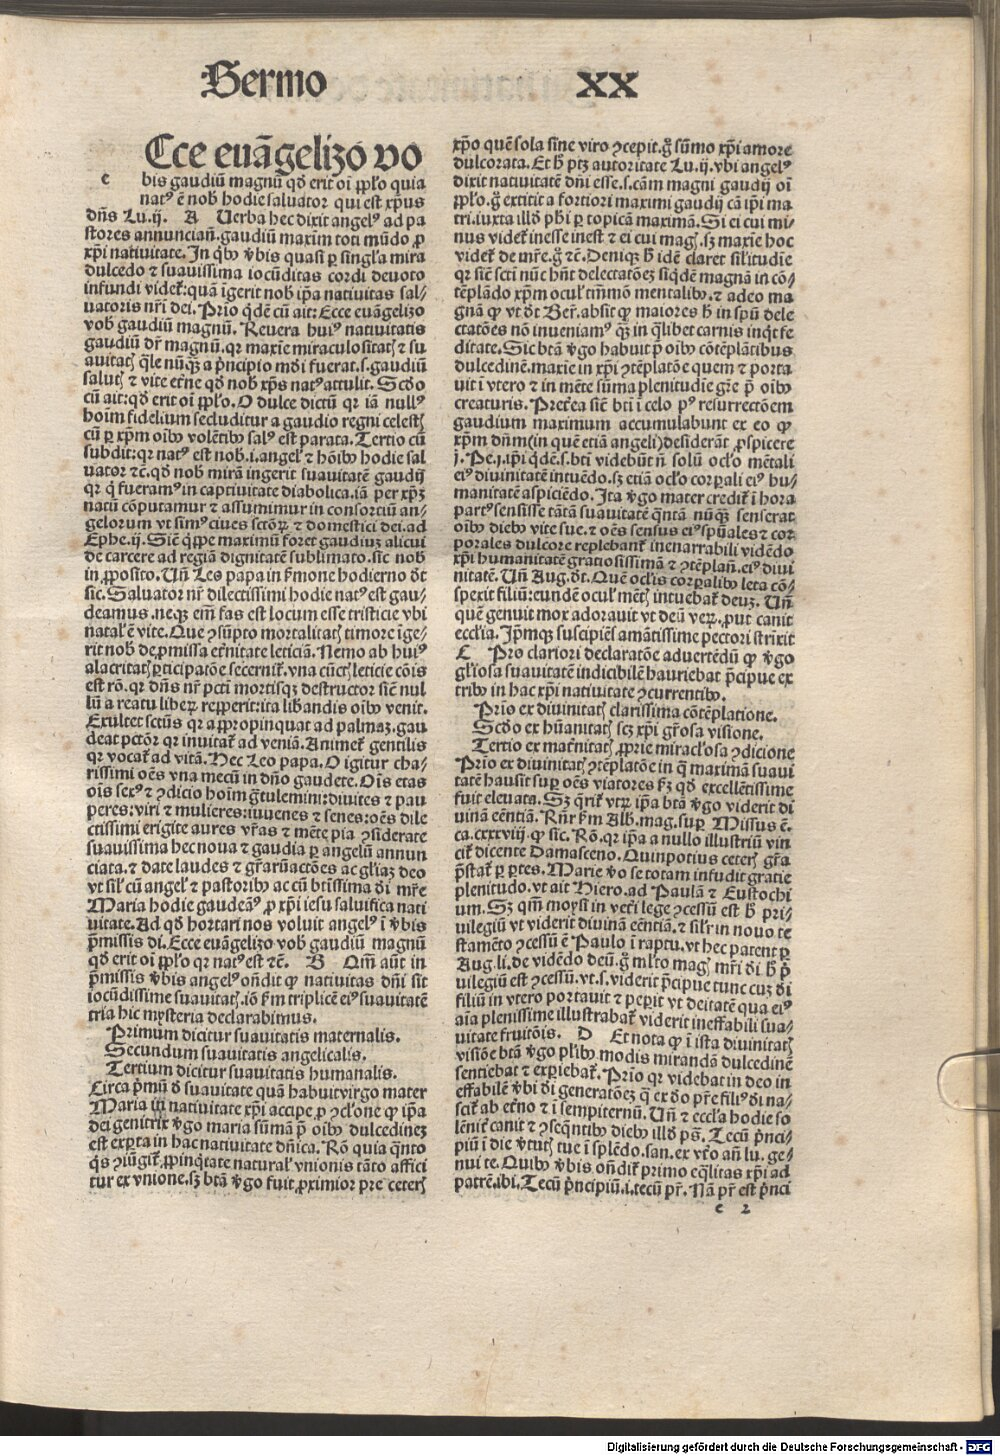 Sermo XX
Ecce euãgelizo vo
e bis gaudiũ magnũ qđ erit oi̅ ꝓpl̓o quia
natꝰ ẽ nob̓ hodie saluator qui est xp̃us
dñs Lu.ij. A Uerba hec dixit angelꝰ ad pa
stores annunciañ.gaudiũ maxim̃ toti mũdo ꝓ
xp̃i natiuitate. In qͥbꝫ v̓bis quasi ꝑ singl̓a mira
dulcedo ⁊ suauissima iocũditas cordi deuoto
infundi videt̃:quã ĩgerit nob̓ ip̃a natiuitas sal⸗
uatoris nr̃i dei. Prĩo qͥdẽ cũ ait: Ecce euãgelizo
vob̓ gaudiũ magnũ. Reuera huiꝰ natiuitatis
gaudiũ dr̃ magnũ.qꝛ maxĩe miraculositatꝭ ⁊ su
auitatꝭ q̃le nũqꝫ a pͥncipio mũdi fuerat.s.gaudiũ
salutꝭ ⁊ vite et̓ne qđ nob̓ xp̃s natꝰ attulit. Scđo
cũ ait:qđ erit oĩ ꝓpl̓o. O dulce dictũ qꝛ iã nullꝰ
hoĩm fidelium secluditur a gaudio regni celestꝭ
cũ ꝑ xp̃m oĩbꝫ volẽtibꝫ salꝰ est parata. Tertio cũ
subdit:qꝛ natꝰ est nob̓.i.angel̓ ⁊ hõĩbꝫ hodie sal
uator ⁊c̃.qđ nob̓ mirã ingerit suauitatẽ gaudij
qꝛ q̓ fueramꝰ in captiuitate diabolica.iã per xp̃ꝫ
natũ cõputamur ⁊ assumimur in consortiũ an⸗
gelorum vt simꝰ ciues sctõꝝ ⁊ domestici dei.ad
Ephe.ij. Siẽ q̓ppe maximũ foret gaudiuꝫ alicui
de carcere ad regiã dignitatẽ sublimato.sic nob̓
in ꝓposito. Uñ Leo papa in s̓mone hodierno dt̃
sic. Saluator nr̃ dilectissimi hodie natꝰ est gau⸗
deamus.neqꝫ em̃ fas est locum esse tristicie vbi
natal̓ ẽ vite. Que ꝯsũpto mortalitatꝭ timore ĩge⸗
rit nob̓ de ꝓmissa et̓nitate leticiã. Nemo ab huiꝰ
alacritatꝭ ꝑticipatõe secernit̃.vna cũctꝭ leticie cõis
est rõ.qꝛ dñs nr̃ pctĩ mortisqꝫ destructor siẽ nul
lũ a reatu liberꝝ repperit:ita lib̓andis oĩbꝫ venit.
Exultet sctũs qꝛ appropinquat ad palmaꝫ.gau
deat pctõr qꝛ inuitat̃ ad veniã. Animet̃ gentilis
qꝛ vocat̃ ad vitã. Hec Leo papa. O igitur cha⸗
rissimi oẽs vna mecũ in dño gaudete. Oĩs etas
oĩs sexꝰ ⁊ ꝯdicio hoĩm g̃tulemini:diuites ⁊ pau
peres:viri ⁊ mulieres:iuuenes ⁊ senes:oẽs dile
ctissimi erigite aures vr̃as ⁊ mẽte pia ꝯsiderate
suauissima hec noua ⁊ gaudia ꝑ angelũ annun
ciata.⁊ date laudes ⁊ gr̃arũactões ac gl̓iaꝫ deo
vt sil̓ cũ angel̓ ⁊ pastoribꝫ ac cũ bt̃issima đi mr̃e
Maria hodie gaudeãꝰ ꝓ xp̃i iesu saluifica nati
uitate. Ad qđ hortari nos voluit angelꝰ ĩ v̓bis
p̃missis đi. Ecce euãgelizo vob̓ gaudiũ magnũ
qđ erit oĩ ꝓpl̓o qꝛ natꝰ est ⁊c̃. B Qm̃ aũt in
p̃missis v̓bis angelꝰ oñdit ꝙ natiuitas dñi sit
iocũdissime suauitatꝭ.iõ s̓m triplicẽ eiꝰ suauitatẽ
tria hic mysteria declarabimus.
Primum dicitur suauitatis maternalis.
Secundum suauitatis angelicalis.
Tertium dicitur suauitatis humanalis.
Circa pͥmũ đ suauitate quã habuit virgo mater
Maria in natiuitate xp̃i accipe.ꝓ ꝯcl̓one ꝙ ip̃a
dei genitrix v̓go maria sũmã p̃ oĩbꝫ dulcedineꝫ
est exp̃ta in hac natiuitate dñica. Rõ quia q̃nto
q̃s ꝯiũgit̃ ꝓpinq̃tate natural̓ vnionis tãto affici
tur ex vnione.sꝫ btã v̓go fuit ꝓximior pre ceterꝭ
xp̃o quẽ sola sine viro ꝯcepit.g̊ sũmo xp̃i amore
dulcorata. Et h̓ ptꝫ autoritate Lu.ij.vbi angelꝰ
dixit natiuitatẽ dñi esse.s.cãm magni gaudij oĩ
ꝓpl̓o.g̊ extitit a fortiori maximi gaudij cã ip̃i ma
tri.iuxta illđ phĩ ꝑ topicã maximã. Si ei cui mi
nus videt̃ inesse inest ⁊ ei cui magꝭ.sꝫ maxĩe hoc
videt̃ de mr̃e.g̊ ⁊c̃. Deniqꝫ h̓ idẽ claret sil̓itudĩe
qꝛ siẽ sctĩ nũc hñt delectatõeꝫ siqͥdẽ magnã in cõ⸗
tẽplãdo xp̃m ocul̓ tm̃mõ mentalibꝫ.⁊ adeo ma
gnã ꝙ vt đt Ber̃.absit ꝙ maiores h̓ in spũ dele
ctatões nõ inueniamꝰ q̃ꝫ in q̃libet carnis inqͥt fe
ditate. Sic btã v̓go habuit p̃ oĩbꝫ cõtẽplãtibus
dulcedinẽ.maxĩe in xp̃i ꝯtẽplatõe quem ⁊ porta
uit ĩ vtero ⁊ in mẽte sũma plenitudĩe gr̃e p̃ oĩbꝫ
creaturis. Pret̓ea siẽ btĩ ĩ celo pꝰ resurrectõem
gaudium maximum accumulabunt ex eo ꝙ
xp̃m dñm(in quẽ etiã angeli)desiderãt ꝓspicere
j.Pe.j.ip̃i qͥdẽ.s.btĩ videbũt ñ solũ ocl̓o mẽtali
eiꝰ diuinitatẽ intuẽdo.sꝫ etiã ocl̓o corꝑali eiꝰ hu⸗
manitatẽ aspiciẽdo. Ita v̓go mater credit̃ ĩ hora
partꝰ sensisse tãtã suauitatẽ q̃ntã nũqꝫ senserat
oĩbꝫ diebꝫ vite sue.⁊ oẽs sensus eiꝰ spũales ⁊ cor
porales dulcore replebant̃ inenarrabili vidẽdo
xp̃i humanitatẽ gratiosissimã ⁊ ꝯtẽplañ.eiꝰ diui
nitatẽ. Uñ Aug.đt. Quẽ ocl̓is corꝑalibꝫ leta cõ⸗
spexit filiũ:eundẽ ocul̓ mẽtꝭ intuebat̃ deuꝫ. Uñ
quẽ genuit mox adorauit vt deũ verꝝ.ꝓut canit
eccl̓ia. Ip̃mqꝫ suscipiẽs amãtissime pectori strixit
C Pro clariori declaratõe aduertẽdũ ꝙ v̓go
gl̓iosa suauitatẽ indicibilẽ hauriebat p̃cipue ex
tribꝫ in hac xp̃i natiuitate ꝯcurrentibꝫ.
Prĩo ex diuinitatꝭ clarissima cõtẽplatione.
Scđo ex hũanitatꝭ scꝫ xp̃i gr̃osa visione.
Tertio ex mat̓nitatꝭ ꝓprie miracl̓osa ꝯdicione
Prĩo ex diuinitatꝭ ꝯtẽplatõe in q̃ maximã suaui
tatẽ hausit sup̲ oẽs viatores s̓ꝫ qđ excellẽtissime
fuit eleuata. Sꝫ q̃rit̃ vtꝝ ip̃a btã v̓go viderit di
uinã eẽntiã. Rñr̃ s̓m Alb̓.mag.sup̲ Missus ẽ.
ca.cxxxviij.ꝙ sic. Rõ.qꝛ ip̃a a nullo illustriũ vin
cit̃ dicente Damasceno. Quinpotius ceterꝭ gr̃a
p̃stat̃ ꝑ ꝑtes. Marie v̓o se totam infudit gratie
plenitudo.vt ait Hiero.ad Paulã ⁊ Eustochi
um. Sꝫ qm̃ moysi in vet̓i lege ꝯcessũ est h̓ pri⸗
uilegiũ vt viderit diuinã eẽntiã.⁊ sil̓r in nouo te
stamẽto ꝯcessũ ẽ Paulo ĩ raptu.vt hec patent ꝑ
Aug.li.de vidẽdo deũ.g̊ ml̓to magꝭ mr̃i đi h̓ p̃
uilegiũ est ꝯcessũ.vt.s.viderit p̃cipue tunc cuꝫ đi
filiũ in vtero portauit ⁊ peꝑit vt deitatẽ qua eiꝰ
aĩa plenissime illustrabat̃ viderit ineffabili sua⸗
uitate fruitõis. D Et nota ꝙ ĩ ista diuinitatꝭ
visiõe btã v̓go pl̓ibꝫ modis mirandã dulcedinẽ
sentiebat ⁊ exꝑiebat̃. Prĩo qꝛ videbat in deo in
effabilẽ v̓bi đi generatõeꝫ q̃ ex đo pr̃e filiꝰ đi na⸗
scit̃ ab et̓no ⁊ ĩ sempiternũ. Uñ ⁊ eccl̓a hodie so
lẽnit̓ canit ⁊ ꝯseqñtibꝫ diebꝫ illđ pš. Tecũ pͥnci⸗
piũ ĩ die v̓tutꝭ tue ĩ splẽdo.san.ex vt̓o añ lu.ge⸗
nui te. Quibꝫ v̓bis oñdit̃ primo eq̃litas xp̃i ad
patrẽ.ibi. Tecũ pͥncipiũ.i.tecũ pr̃. Nã pr̃ est pͥnci
e 2
Digitalisierung gefördert durch die Deutsche Forschungsgemeinschaft - DFG